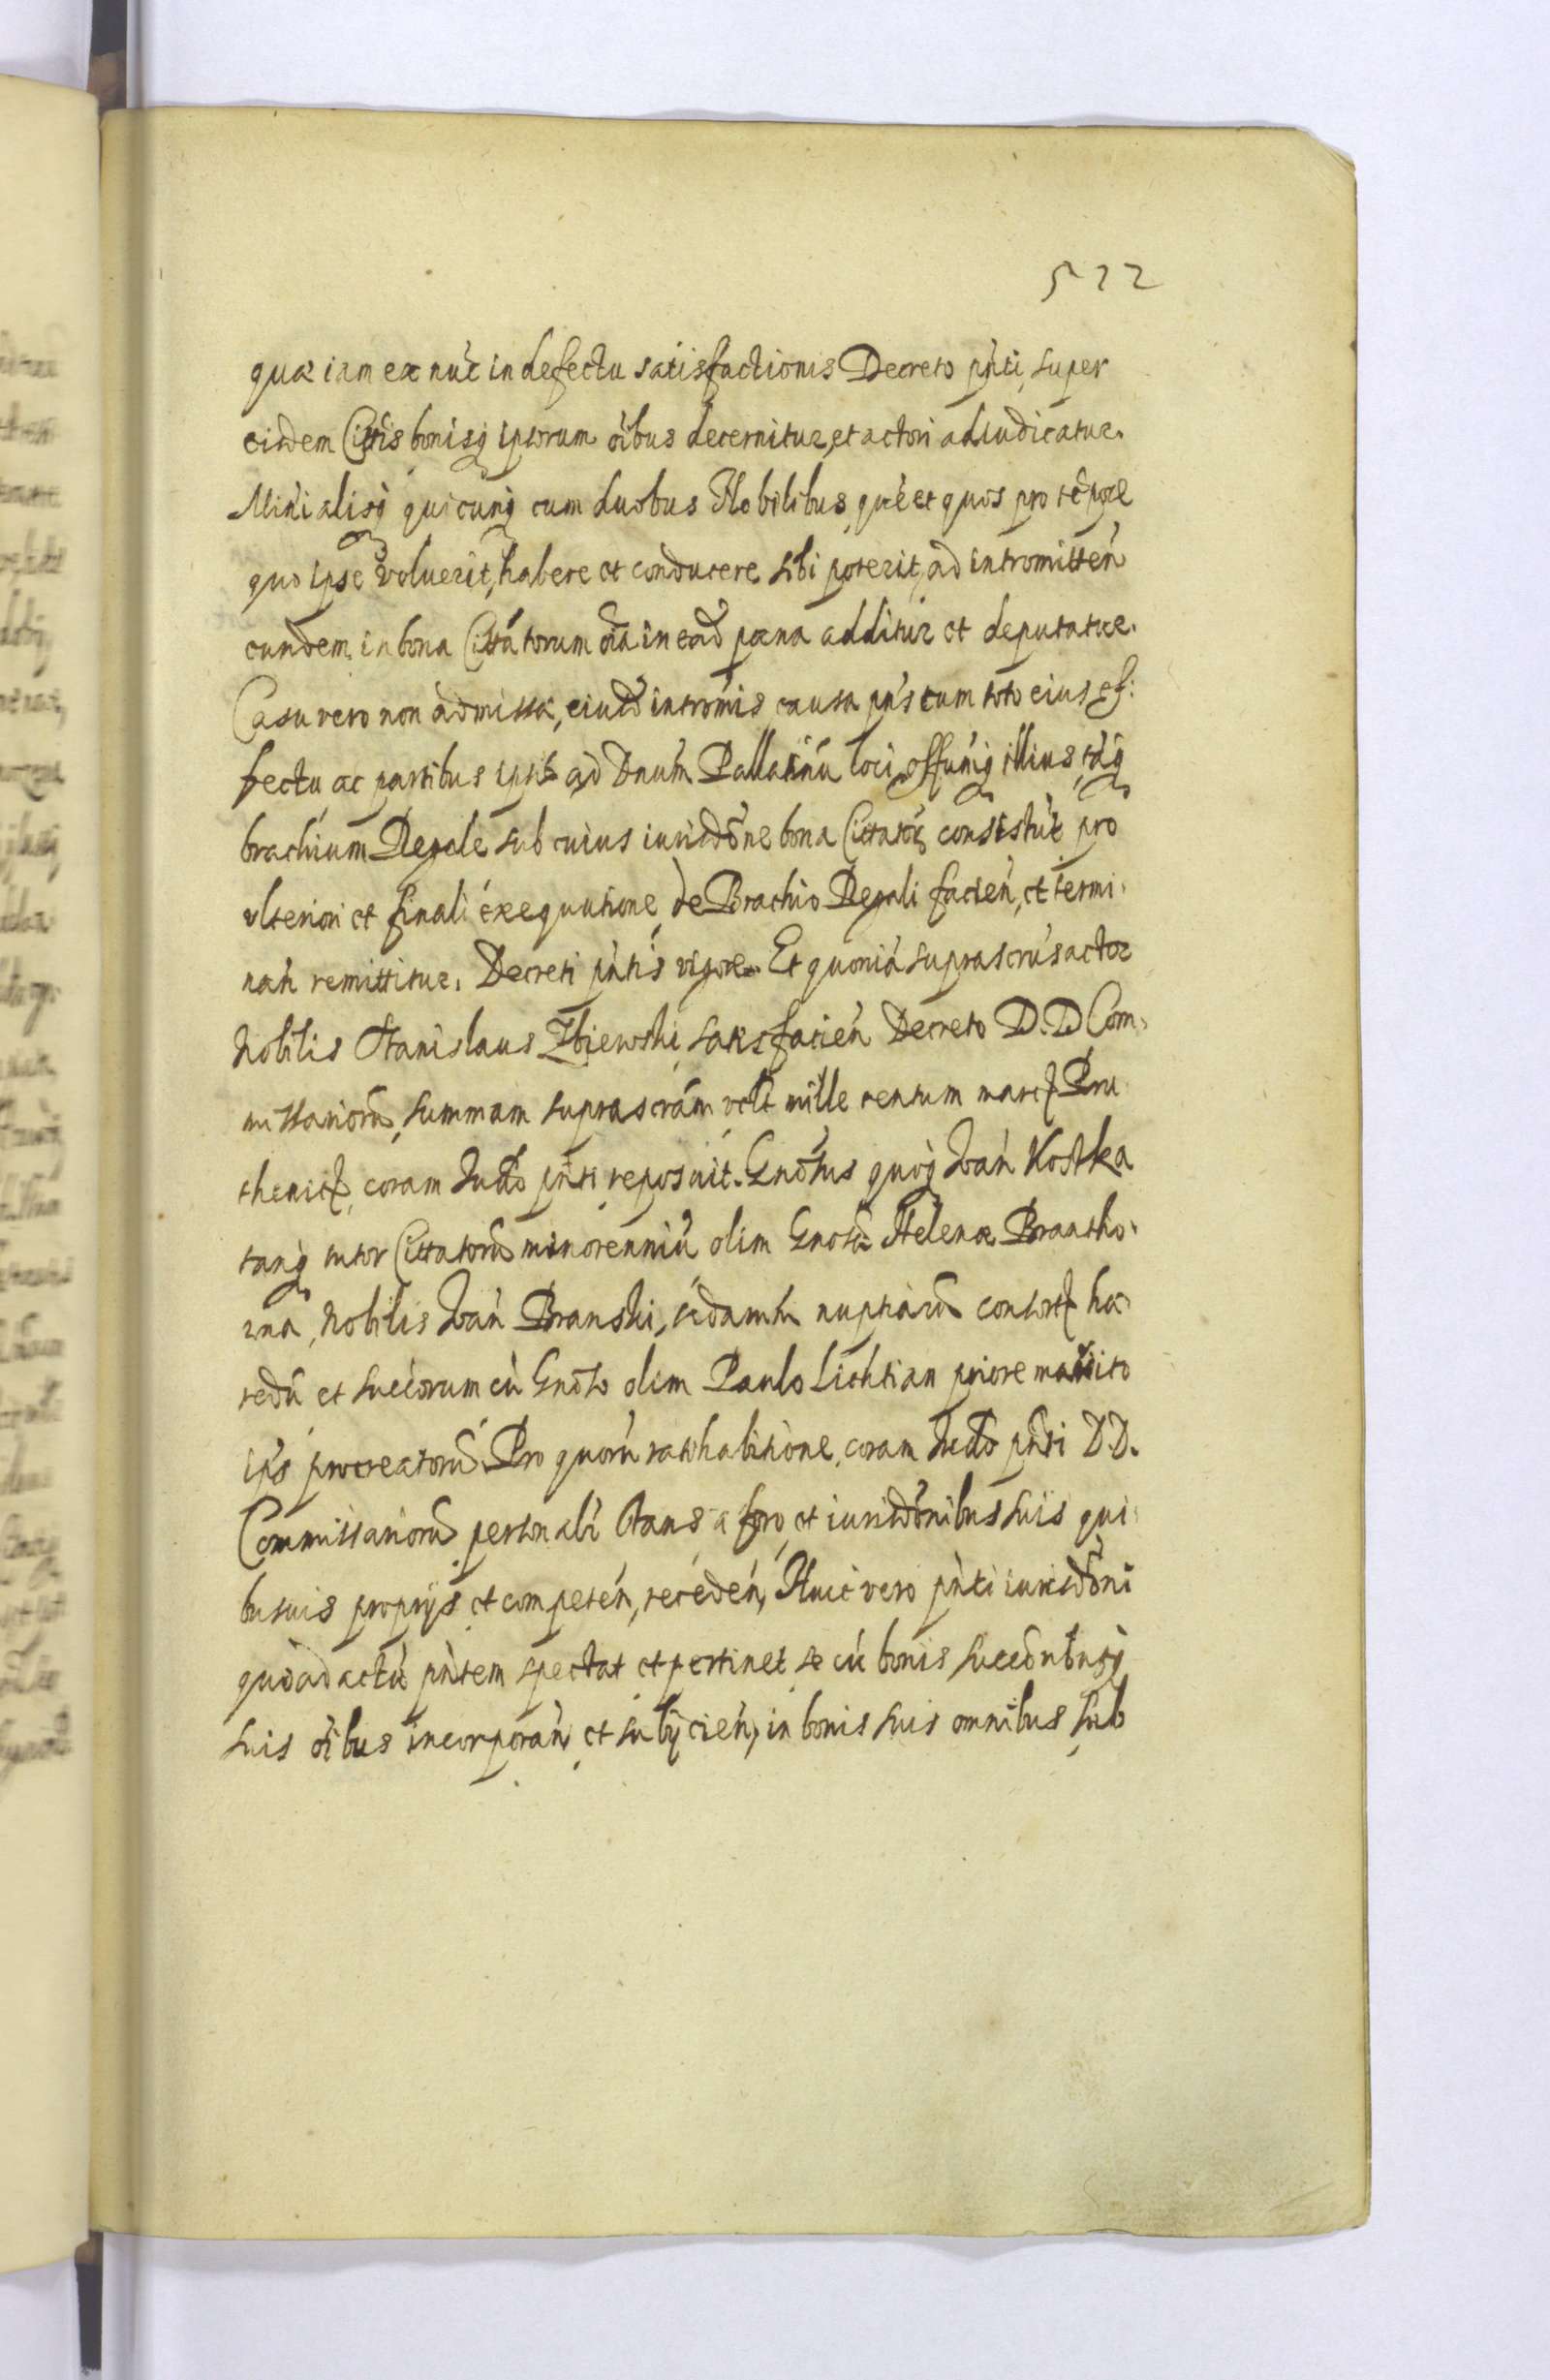 522
quæ iam ex nūc in defectu satisfactionis Decreto pñti, super
eisdem Cittis bonisq ipsorum oibus decernitur, et actori adiudicatur.
Minialisq quicunq cum duobus Nobilibus, quē et quos pro tēpore
quo ipse voluerit, habere et conducere sibi poterit, ad intromitteń
eundem in bona Cittatorum oīa in eād pœna additur et deputatur.
Casu vero non admissæ, eiusd intromis causa pńs cum toto eius ef:
fectu ac partibus ipsis ad Dnum Pallatinū loci officiūq illius, tāq
brachium Regale sub cuius iurisdōne bona Cittator consistūt pro
ulteriori et finali exequutione, de Brachio Regali facień, et termi
nań remittitur. Decreti pńtis vigore. Et quoniā suprascrus actor
Nobilis Stanislaus Zbiewski, satisfacień Decreto D. D Com
missariorū, summam suprascrām velt mille centum marc Pru
thenic, coram Judō pńti reposuit. Gnōsus quoq Joań Kostka
tanq tutor Cittatorū minorenniū olim Gnosæ Helenæ Brantho
vna, Nobilis Joań Branski, secdarum nuptiarū consort hæ
redū et succorum cū Gnōso olim Paulo Lichtian priore marito
ips procreatorū. Pro quorū ratihabitione, coram Judō pńti D.D.
Commissariorū personalr stans a foro, et iurisdōnibus suis qui
busuis proprijs et competeń, recedeń, Huic vero pńti iurisdōni
quō ad actū pńtem spectat et pertinet se cū bonis succdnibusq
suis oibus incorporań et subijcień, in bonis suis omnibus sub